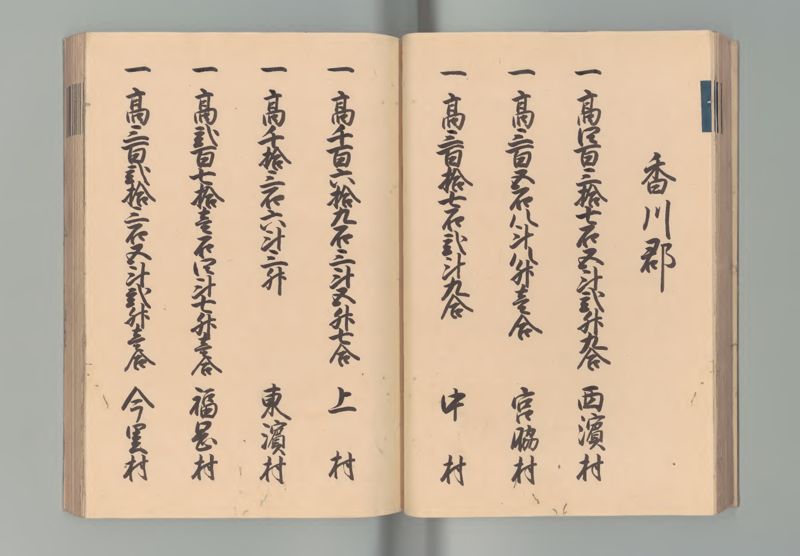 香川郡
一高四百三拾七石五斗弐升九合 西濱村
一高三百五石八斗八升壱合 宮脇村
一高三百拾七石弐斗九合 中村
一高千百六拾九石三斗五升七合 上村
一高千拾三石六斗三升 東濱村
一高弐百七拾壱石四斗七升壱合 福岡村
一高三百弐拾三石五斗弐升壱合 今里村